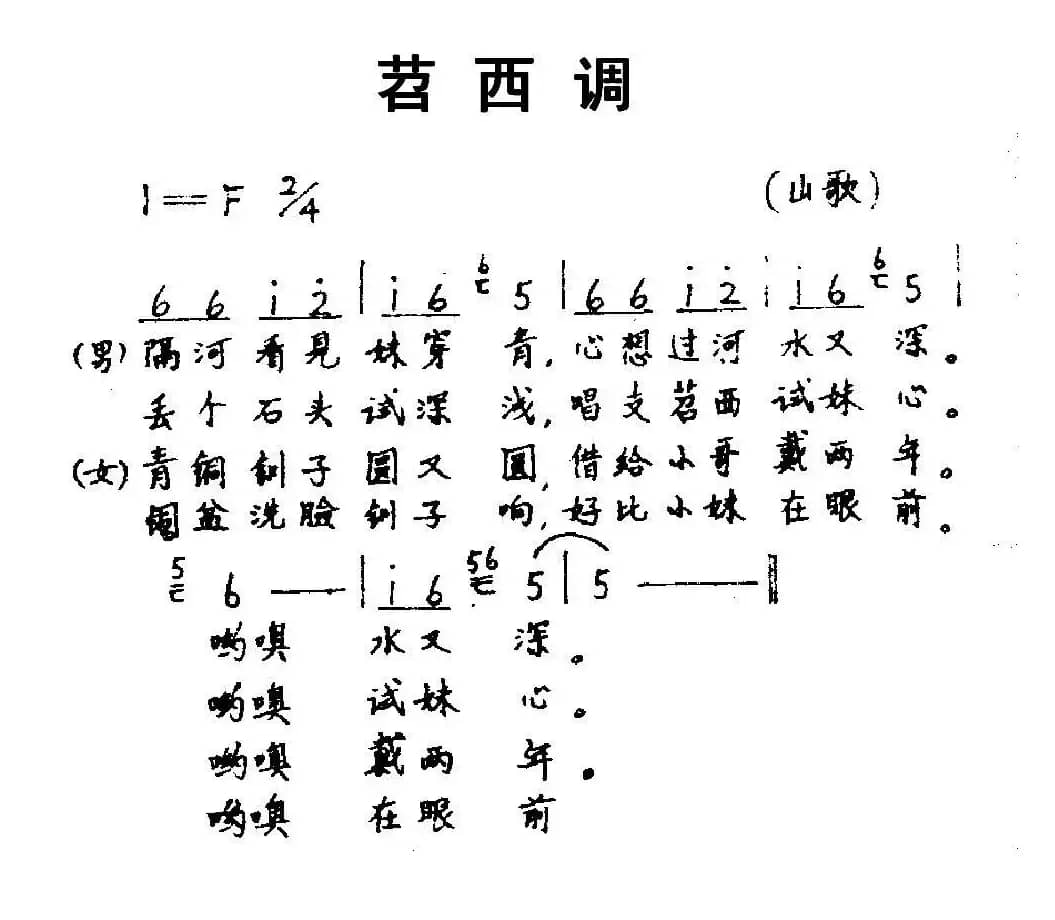 苕西调
1=F 2/4 (山歌)
6 6 i̇ 2̇ | i̇ 6 6 5 | 6 6 i̇ 2̇ | i̇ 6 6 5 |
(男) 隔河看見妹穿青,心想过河水又深。
丢个石头试深浅,唱支苕西试妹心。
(女) 青铜钏子圆又圆,借给小哥戴两年。
铜盆洗脸钏子响,好比小妹在眼前。
5 6 — | i̇ 6 56 5 | 5 — ‖
哟噢 水又深。
哟噢 试妹心。
哟噢 戴两年。
哟噢 在眼前